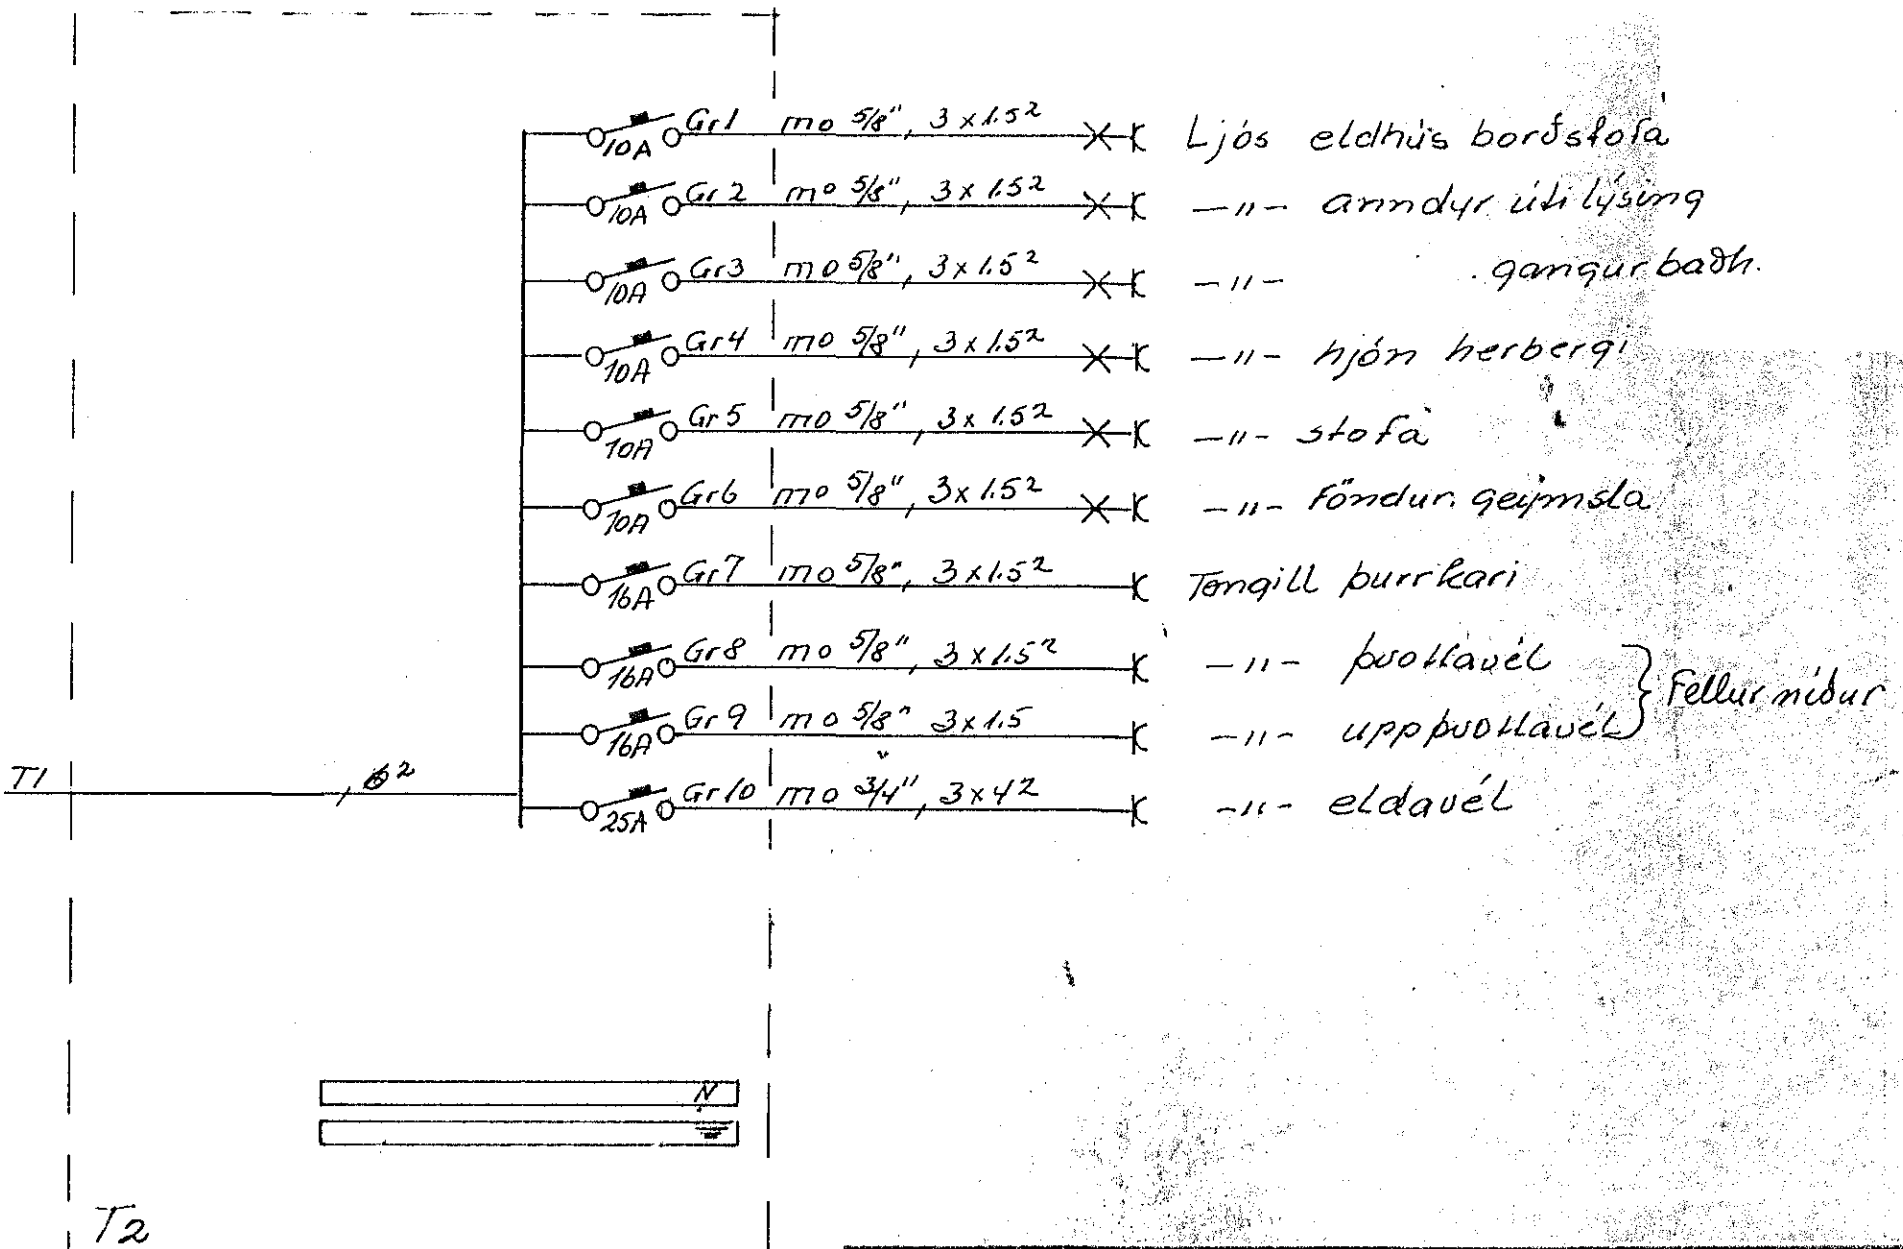 10A Gr1 mo 5/8", 3 x 1.5² Ljós eldhús borðstofa
10A Gr2 mo 5/8", 3 x 1.5² —"— anndyr úti lýsing
10A Gr3 mo 5/8", 3 x 1.5² —"— gangur baðh.
10A Gr4 mo 5/8", 3 x 1.5² —"— hjón herbergi
10A Gr5 mo 5/8", 3 x 1.5² —"— stofa
10A Gr6 mo 5/8", 3 x 1.5² —"— föndur. geijmsla
16A Gr7 mo 5/8", 3 x 1.5² Tengill þurrkari
16A Gr8 mo 5/8", 3 x 1.5² —"— þvottavél
Fellur niður
16A Gr9 mo 5/8" 3 x 1.5 —"— uppþvottavél
T1 6²
25A Gr10 mo 3/4", 3 x 4² —"— eldavél
N
T2